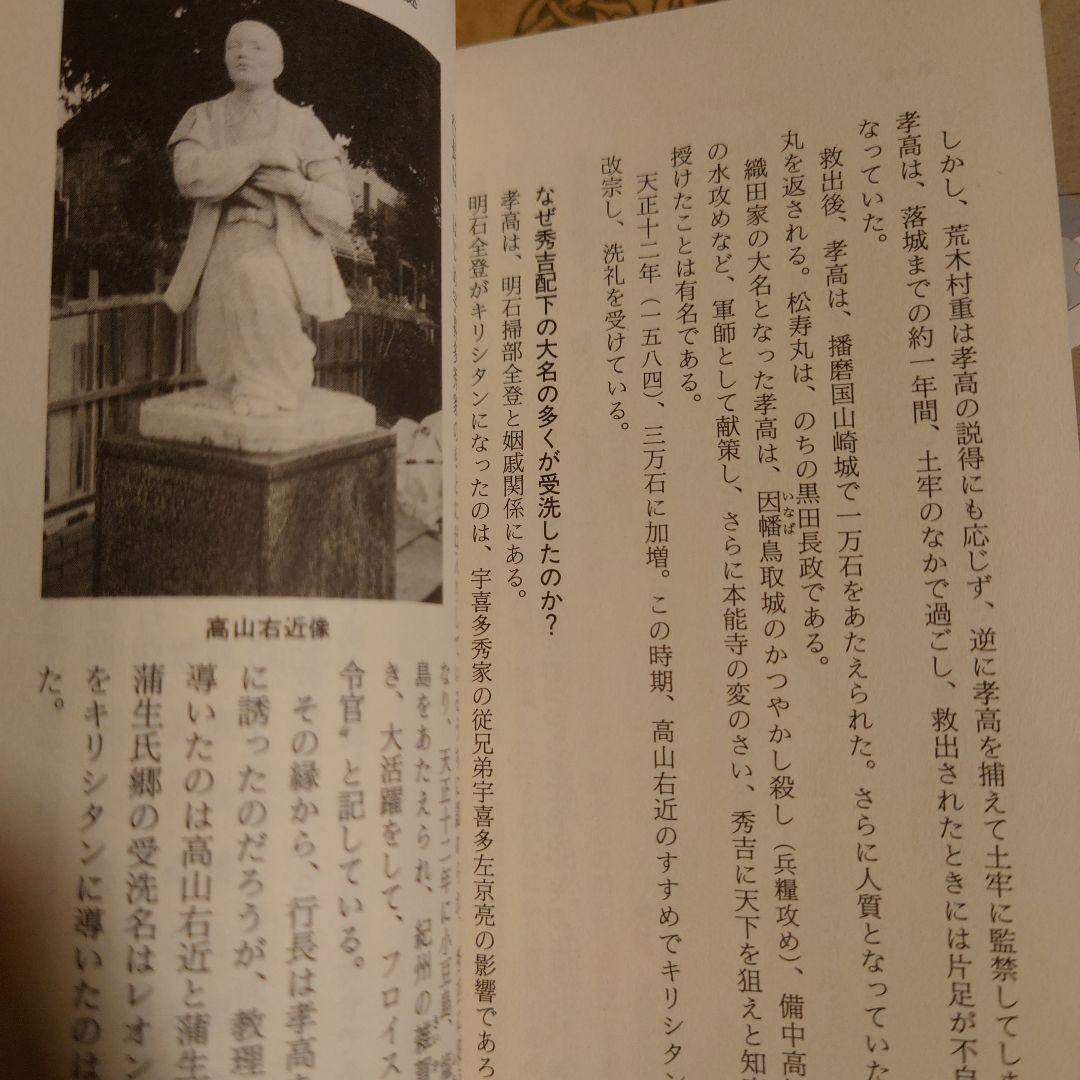 しかし、荒木村重は孝高の説得にも応じず、逆に孝高を捕えて土牢に監禁してしま
孝高は、落城までの約一年間、土牢のなかで過ごし、救出されたときには片足が不自
なっていた。
救出後、孝高は、播磨国山崎城で一万石をあたえられた。さらに人質となっていた
丸を返される。松寿丸は、のちの黒田長政である。
織田家の大名となった孝高は、因幡鳥取城のかつやかし殺し(兵糧攻め)、備中高
いなば
の水攻めなど、軍師として献策し、さらに本能寺の変のさい、秀吉に天下を狙えと知
授けたことは有名である。
天正十二年(一五八四)、三万石に加増。この時期、高山右近のすすめでキリシタン
改宗し、洗礼を受けている。
なぜ秀吉配下の大名の多くが受洗したのか?
孝高は、明石掃部全登と姻戚関係にある。
明石全登がキリシタンになったのは、宇喜多秀家の従兄弟宇喜多左京亮の影響であろ
高山右近像
なり、天正十二年に小豆島、
島をあたえられ、紀州の雑賀
き、大活躍をして、フロイス
令官〟と記している。
その縁から、行長は孝高
に誘ったのだろうが、教理
導いたのは高山右近と蒲生
蒲生氏郷の受洗名はレオン
をキリシタンに導いたのは
た。